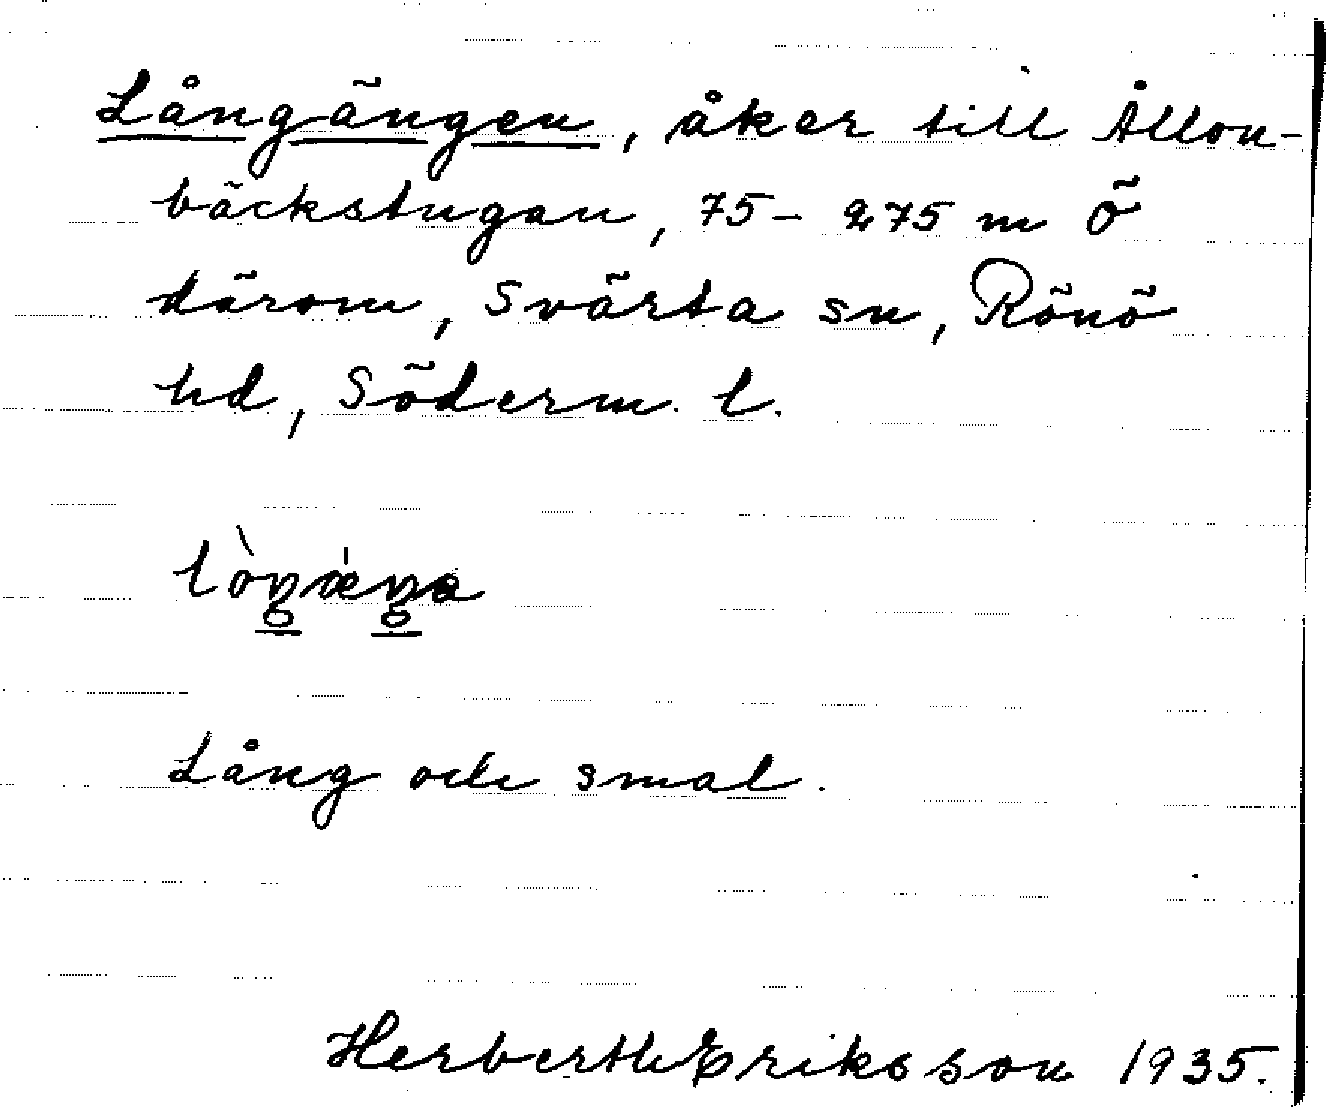 Långängen, åker till Ållon-
bäckstugan, 75-275 m Ö
därom, Svärta sn, Rönö
hd, Söderm. l.
lòŋæ̀ŋa
Lång och smal.
Herberth Eriksson 1935.